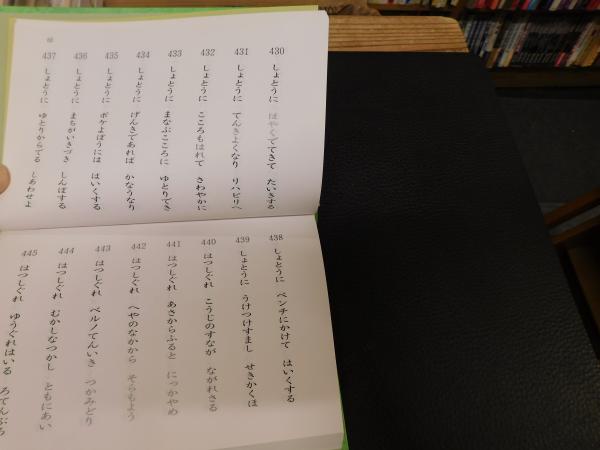 430 しょとうに はやくでてきて たいきする
431 しょとうに てんきよくなり リハビリへ
432 しょとうに こころもはれて さわやかに
433 しょとうに まなぶこころに ゆとりでき
434 しょとうに げんきであれば かなうなり
435 しょとうに ボケよぼうには はいくする
436 しょとうに まちがいきづき しんぽする
437 しょとうに ゆとりからでる しあわせよ
438 しょとうに ベンチにかけて はいくする
439 しょとうに うけつけすまし せきかくほ
440 はつしぐれ こうじのすなが ながれさる
441 はつしぐれ あさからふると にっかやめ
442 はつしぐれ へやのなかから そらもよう
443 はつしぐれ ベルノてんいき つかみどり
444 はつしぐれ むかしなつかし ともにあい
445 はつしぐれ ゆうぐれはいる ろてんぶろ